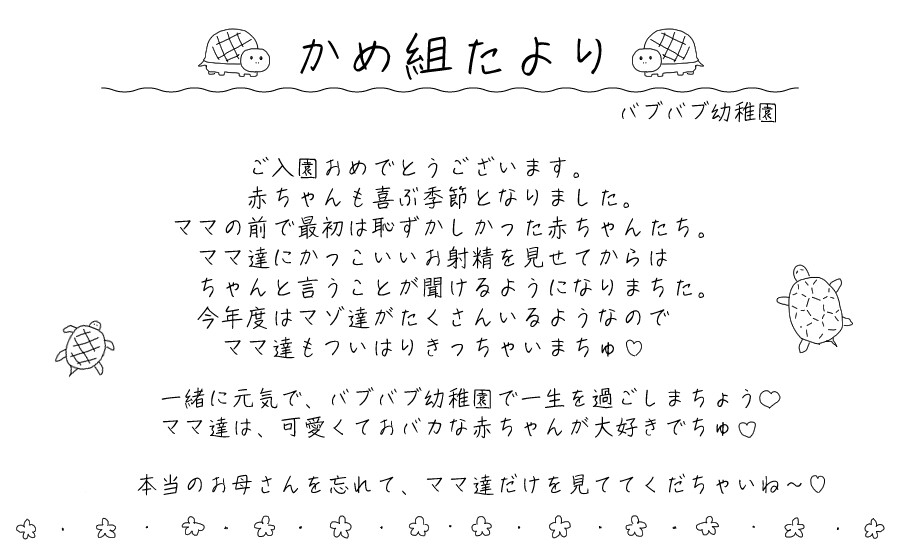 かめ組たより
バブバブ幼稚園
ご入園おめでとうございます。
赤ちゃんも喜ぶ季節となりました。
ママの前で最初は恥ずかしかった赤ちゃんたち。
ママ達にかっこいいお射精を見せてからは
ちゃんと言うことが聞けるようになりまちた。
今年度はマゾ達がたくさんいるようなので
ママ達もついはりきっちゃいまちゅ♡
一緒に元気で、バブバブ幼稚園で一生を過ごしまちょう♡
ママ達は、可愛くておバカな赤ちゃんが大好きでちゅ♡
本当のお母さんを忘れて、ママ達だけを見ててくだちゃいね～♡